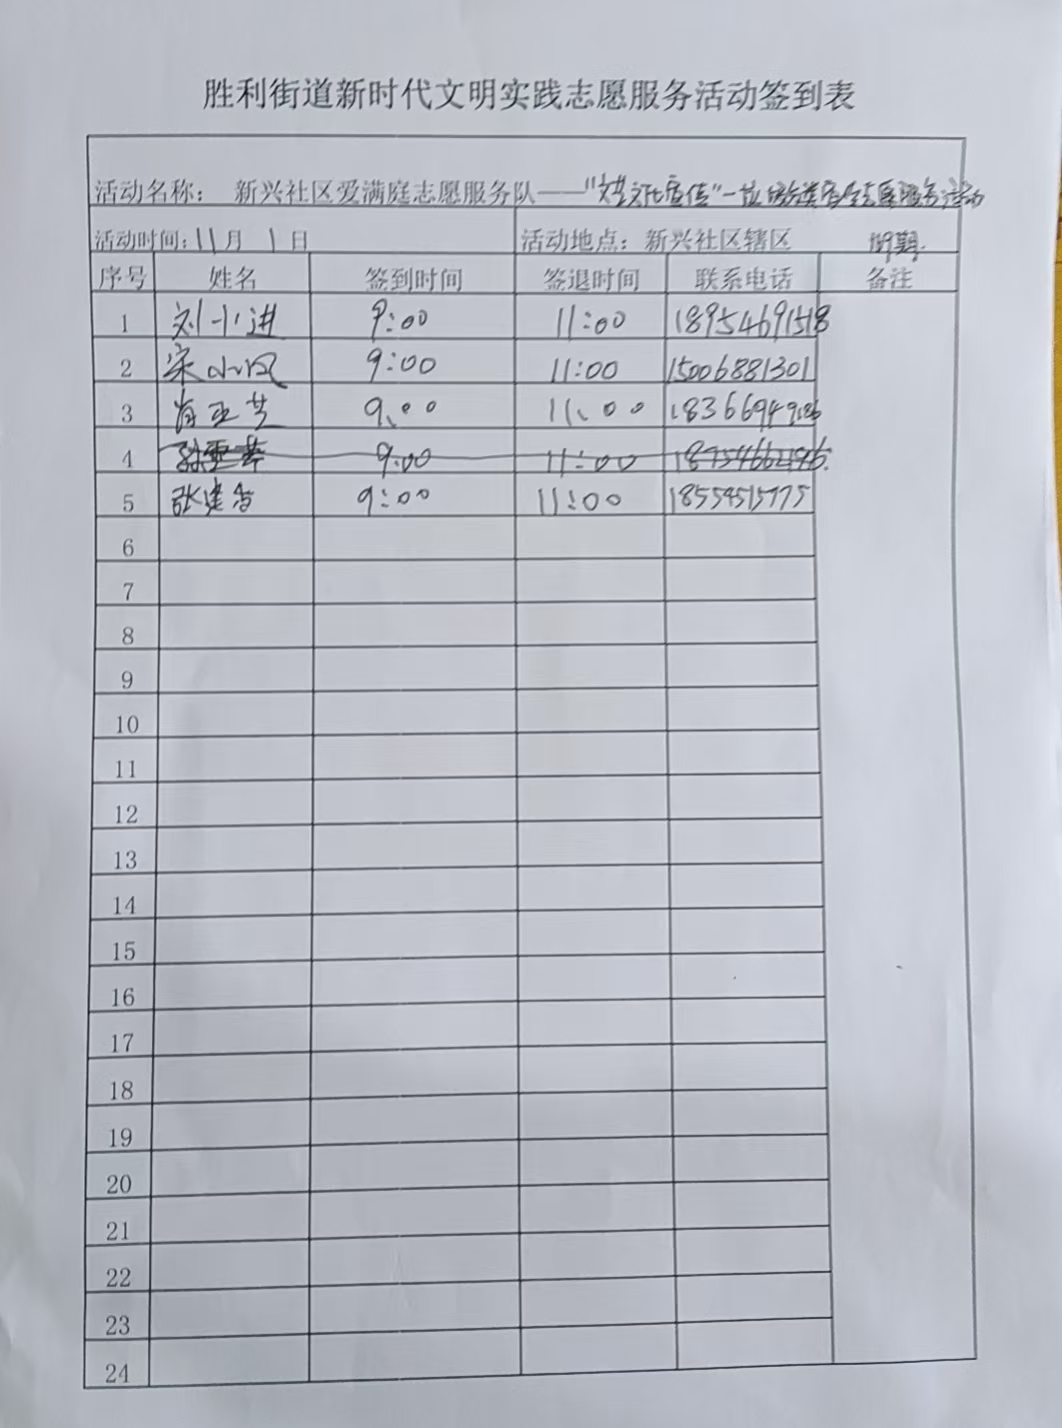 胜利街道新时代文明实践志愿服务活动签到表
活动名称： 新兴社区爱满庭志愿服务队——"文艺文化宣传"一 服务活动
活动时间：11月 1日 活动地点：新兴社区辖区
序号 姓名 签到时间 签退时间 联系电话 备注
1 刘小进 9:00 11:00 18954691518
2 宋小风 9:00 11:00 15006881301
3 肖亚芝 9:00 11:00 183669
4 9:00 11:00
5 张建香 9:00 11:00 18554515775
6
7
8
9
10
11
12
13
14
15
16
17
18
19
20
21
22
23
24